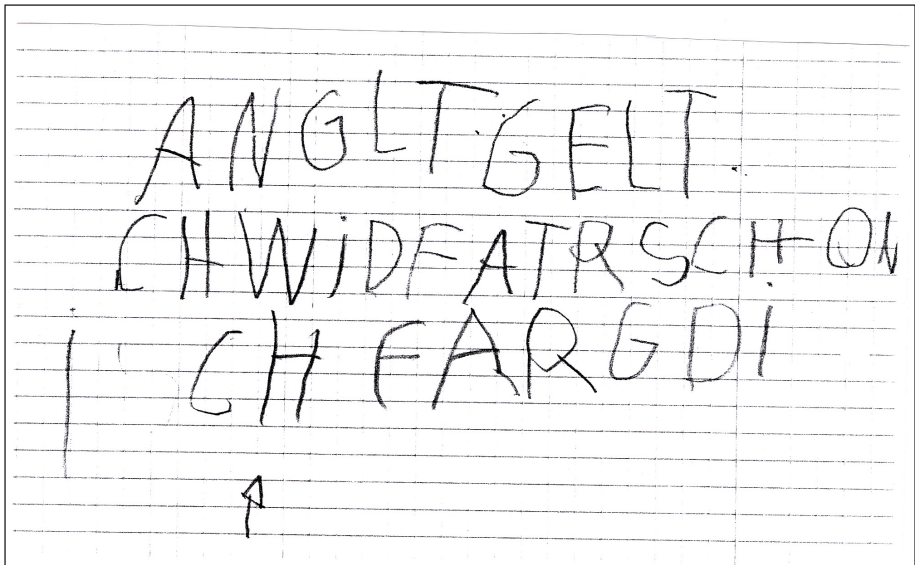 ANGLT.GELT.
CHWiDFATRSCHON
i CH FARGDi